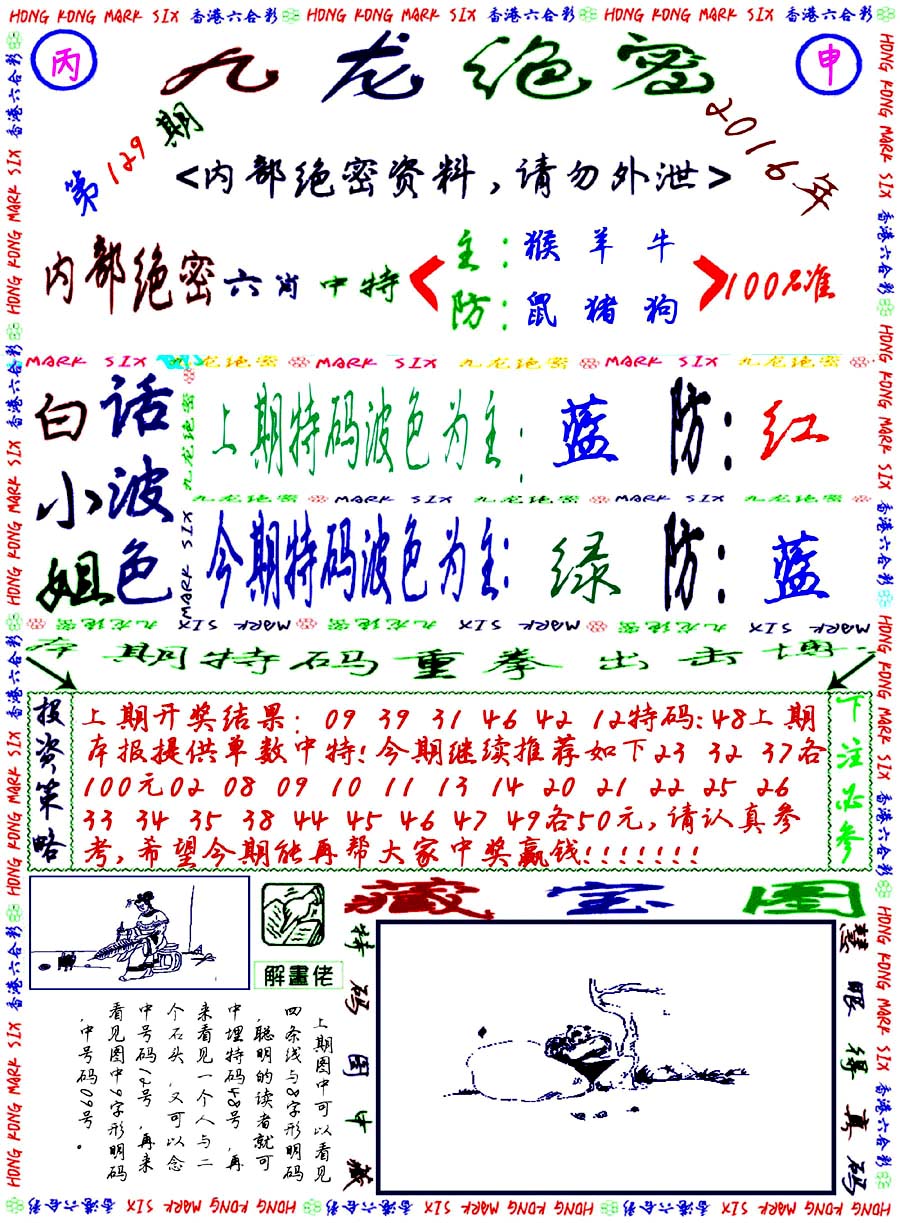 HONG KONG MARK SIX 香港六合彩 HONG KONG MARK SIX 香港六合彩 HONG KONG MARK SIX 香港六合彩
丙
九龙绝密
申
第129期
2016年
<内部绝密资料,请勿外泄>
内部绝密六肖中特
主:猴羊牛
防:鼠猪狗
100%准
MARK SIX 九龙绝密 MARK SIX 九龙绝密 MARK SIX 九龙绝密
白话
小波
姐色
上期特码波色为主:蓝 防:红
九龙绝密 MARK SIX 九龙绝密 MARK SIX 九龙绝密
今期特码波色为主:绿 防:蓝
MARK SIX 九龙绝密 MARK SIX 九龙绝密 MARK SIX 九龙绝密 MARK SIX
本期特码重拳出击博
投资策略
上期开奖结果: 09 39 31 46 42 12特码:48上期
本报提供单数中特!今期继续推荐如下23 32 37各
100元02 08 09 10 11 13 14 20 21 22 25 26
33 34 35 38 44 45 46 47 49各50元,请认真参
考,希望今期能再帮大家中奖赢钱!!!!!!!
下注必参
解畫佬
藏宝图
特码图中藏
慧眼得真码
上期图中可以看见
四条线与8字形明码
,聪明的读者就可
中埋特码48号,再
来看见一个人与二
个石头,又可以念
中号码12号,再来
看见图中9字形明码
,中号码09号。
HONG KONG MARK SIX 香港六合彩 HONG KONG MARK SIX 香港六合彩 HONG KONG MARK SIX 香港六合彩